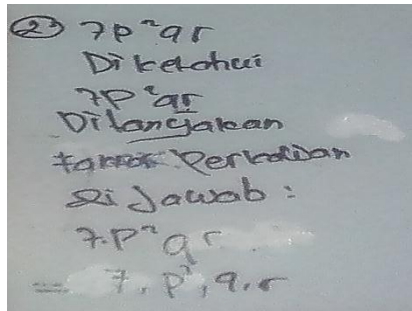 ② 7p²qr
Diketahui
7p²qr
Ditanyakan
faktor Perkalian
Di Jawab :
7.p² qr
= 7. p², q. r